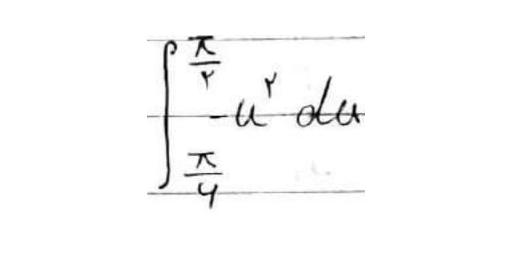 ∫_{π/۶}^{π/۲} -u^۲ du